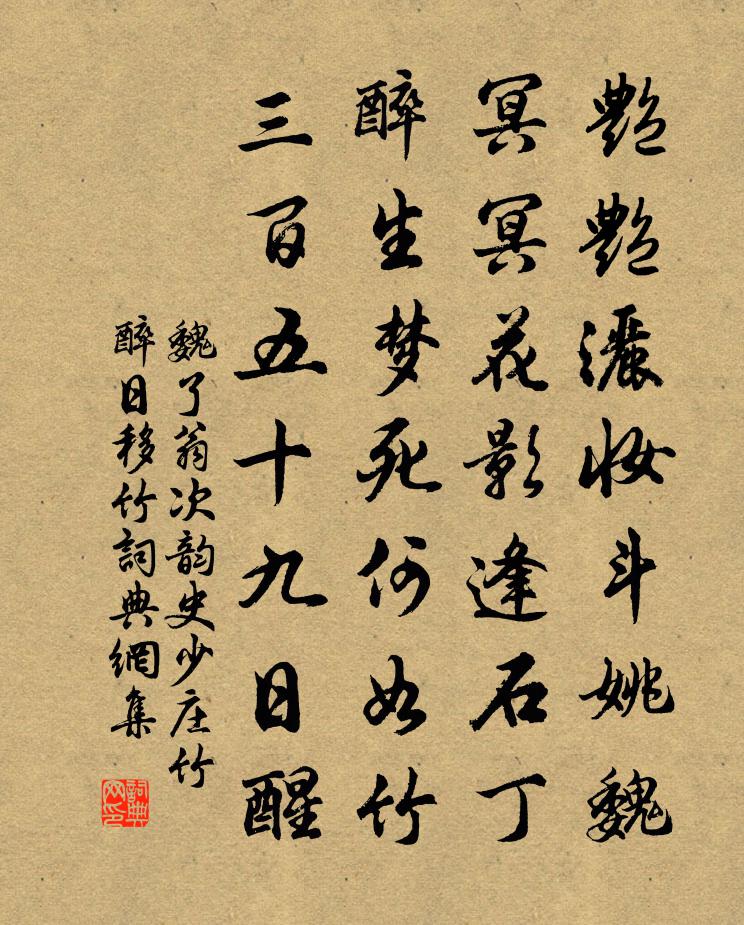 艷艷灑妆斗姚魏
冥冥花影逢石丁
醉生梦死何如竹
三百五十九日醒
魏了翁次韵史少庄竹
醉日移竹詞典網集
詞典网印